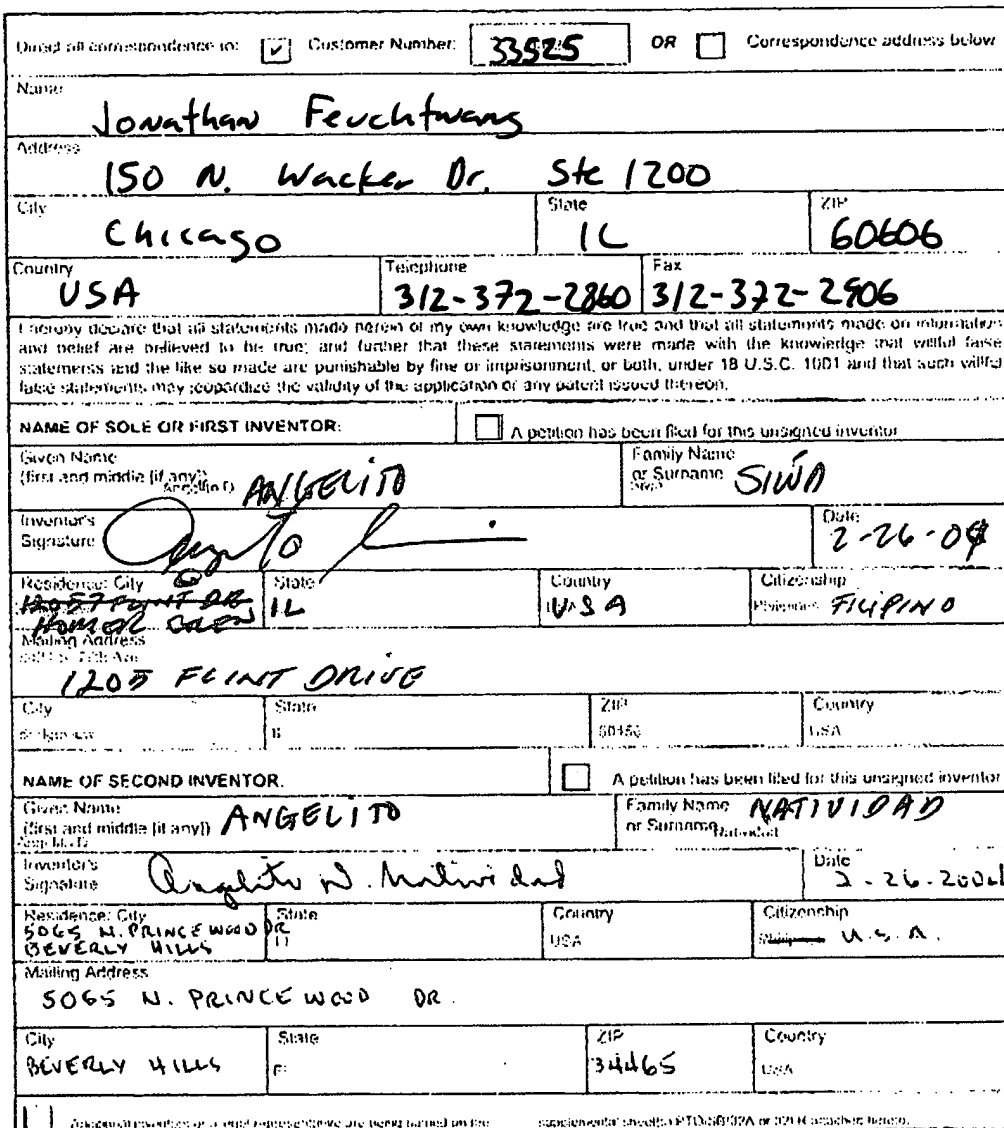 Direct all correspondence to: ✓ Customer Number: 33525 OR Correspondence address below
Name
Jonathan Feuchtwang
Address
150 N. Wacker Dr. Ste 1200
City State ZIP
Chicago IL 60606
Country Telephone Fax
USA 312-372-2860 312-372-2906
I hereby declare that all statements made herein of my own knowledge are true and that all statements made on information
and belief are believed to be true; and further that these statements were made with the knowledge that willful false
statements and the like so made are punishable by fine or imprisonment, or both, under 18 U.S.C. 1001 and that such willful
false statements may jeopardize the validity of the application or any patent issued thereon.
NAME OF SOLE OR FIRST INVENTOR: A petition has been filed for this unsigned inventor
Given Name Family Name
(first and middle [if any]) ANGELITO or Surname SIWA
Inventor's Date
Signature 2-26-04
Residence: City State Country Citizenship
12057 FLINT DR IL USA Philippines FILIPINO
HOMER GLEN
Mailing Address
1205 FLINT DRIVE
City State ZIP Country
USA
NAME OF SECOND INVENTOR: A petition has been filed for this unsigned inventor
Given Name Family Name NATIVIDAD
(first and middle [if any]) ANGELITO or Surname Natividad
Inventor's Date
Signature Angelito N. Natividad 2-26-2004
Residence: City State Country Citizenship
5065 N. PRINCEWOOD DR USA U.S.A.
BEVERLY HILLS
Mailing Address
5065 N. PRINCEWOOD DR.
City State ZIP Country
BEVERLY HILLS 34465 USA